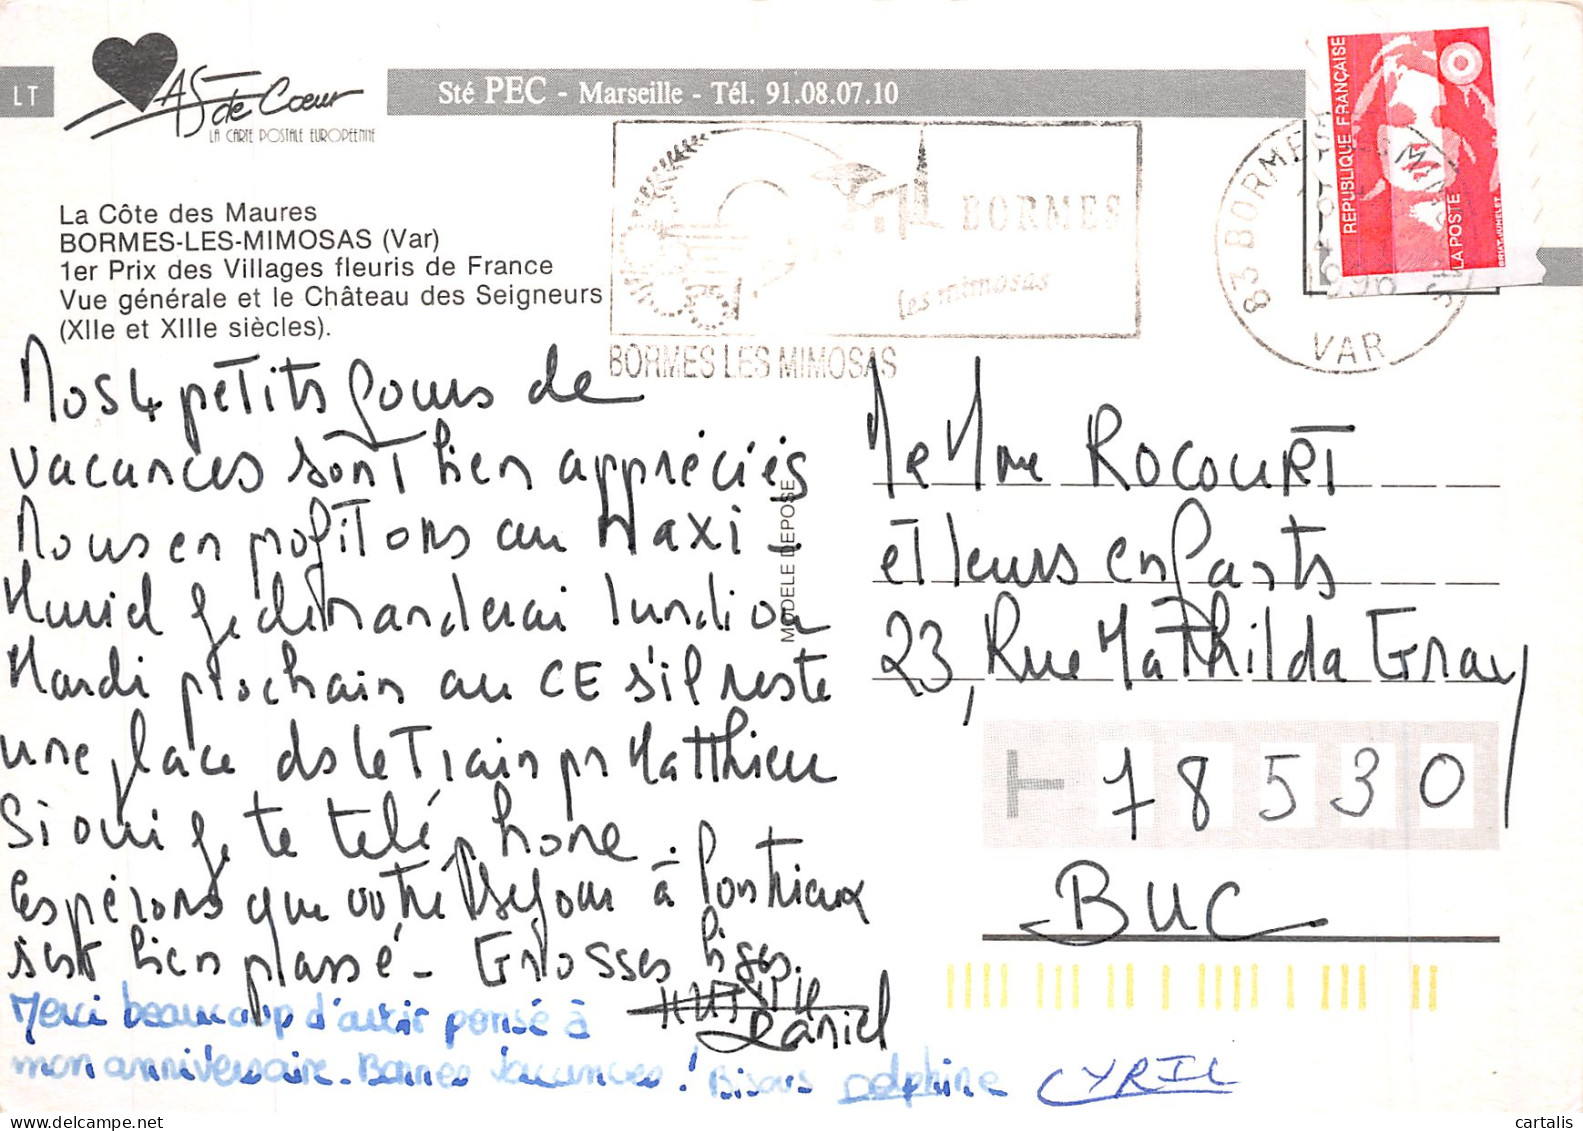 LT
AS de Coeur
LA CARTE POSTALE EUROPEENNE
Sté PEC - Marseille - Tél. 91.08.07.10
La Côte des Maures
BORMES-LES-MIMOSAS (Var)
1er Prix des Villages fleuris de France
Vue générale et le Château des Seigneurs
(XIIe et XIIIe siècles).
BORMES
les mimosas
BORMES LES MIMOSAS
83 BORMES
1996
VAR
REPUBLIQUE FRANÇAISE
LA POSTE
BRIAT-JUMELET
MODELE DEPOSE
Nos 4 petits jours de
vacances sont bien appréciés
Nous en profitons au Maxi -
Muriel je demanderai lundi ou
Mardi prochain au CE s'il reste
une place ds le Train pr Matthieu
Si oui je te téléphone.
Espérons que votre séjour à Pontrieux
s'est bien passé - Grosses bises.
Daniel
Merci beaucoup d'avoir pensé à
mon anniversaire. Bonnes vacances ! Bisous Delphine CYRIL
M et Mme ROCOURT
et leurs enfants
23, Rue Mathilda Gray
78530
BUC
www.delcampe.net
cartalis